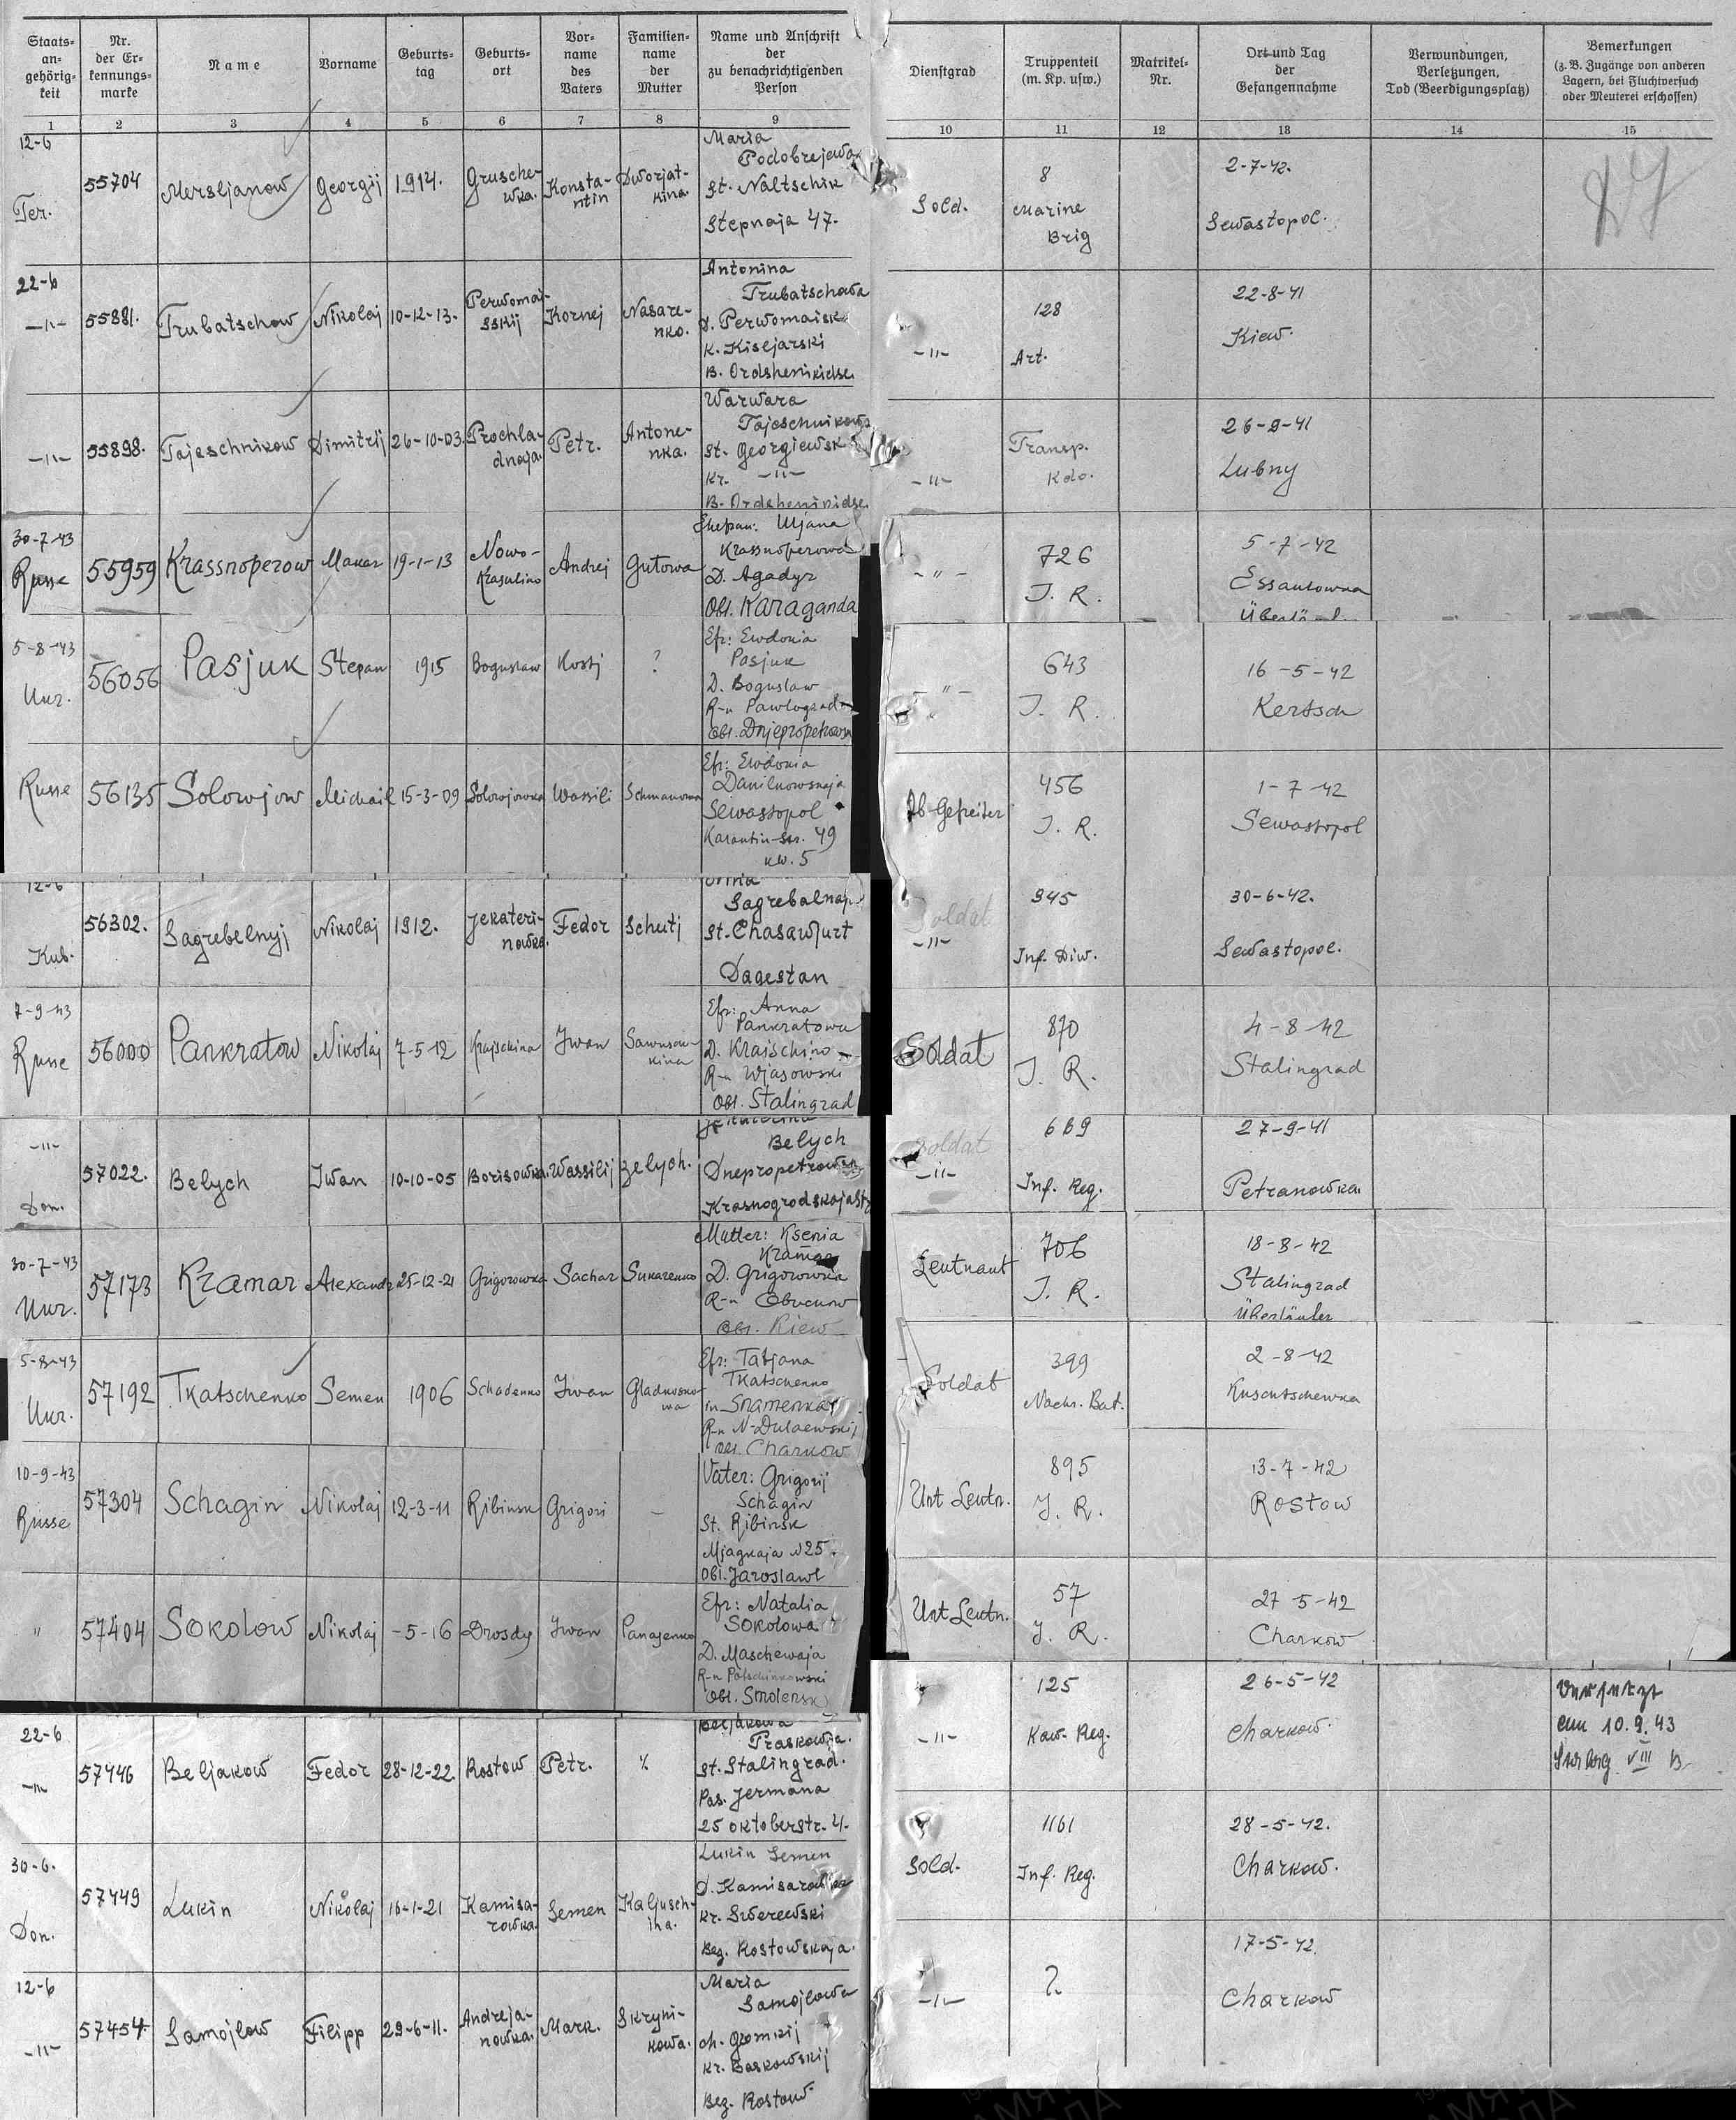 Staats-an-gehörig-keit | Nr. der Er-kennungs-marke | Name | Vorname | Geburts-tag | Geburts-ort | Vor-name des Vaters | Familien-name der Mutter | Name und Anschrift der zu benachrichtigenden Person | Dienstgrad | Truppenteil (m. Kp. usw.) | Matrikel-Nr. | Ort und Tag der Gefangennahme | Verwundungen, Verletzungen, Tod (Beerdigungsplatz) | Bemerkungen (z. B. Zugänge von anderen Lagern, bei Fluchtversuch oder Meuterei erschossen)
1 | 2 | 3 | 4 | 5 | 6 | 7 | 8 | 9 | 10 | 11 | 12 | 13 | 14 | 15
12-6 Ter. | 55704 | Mersljanow | Georgij | 1914. | Grusche-wka. | Konsta-ntin | Dworjat-kina. | Maria Podobrejewa St. Naltschik Stepnaja 47. | Sold. | 8 Marine Brig | 2-7-42. Sewastopol.
22-6 -"- | 55881. | Trubatschow | Nikolaj | 10-12-13. | Perwomai-sskij | Kornej | Nasare-nko. | Antonina Trubatschowa d. Perwomaisk K. Kisljarski B. Ordshenikidse | -"- | 128 Art. | 22-8-41 Kiew.
-"- | 55898. | Tajeschnikow | Dimitrij | 26-10-03. | Prochla-dnaja. | Petr. | Antone-nka. | Warwara Tajeschnikowa St. Georgiewsk Kr. -"- B. Ordshenikidse | -"- | Transp. Kdo. | 26-9-41 Lubny
30-7-43 Russe | 55959 | Krassnoperow | Makar | 19-1-13 | Nowo-Krasulino | Andrej | Gutowa | Ehefrau: Uljana Krassnoperowa D. Agadyr Obl. Karaganda | -"- | 726 J. R. | 5-7-42 Essautowka
5-8-43 Ukr. | 56056 | Pasjuk | Stepan | 1915 | Boguslaw | Kostj | ? | Efr: Ewdokia Pasjuk D. Boguslaw R-n Pawlograd Obl. Dnjepropetrowsk | -"- | 643 J. R. | 16-5-42 Kertsch
Russe | 56135 | Solowjow | Michail | 15-3-09 | Solowjowka | Wassili | Schmanowa | Efr: Ewdokia Danilkowskaja Sewastopol Karantin-str. 49 kw. 5 | Ob-Gefreiter | 456 J. R. | 1-7-42 Sewastopol
12-6 Kub. | 56302. | Sagrebelnyj | Nikolaj | 1912. | Jekateri-nowka. | Fedor | Schutj | Sagrebalnaja St. Chasawjurt Dagestan | Soldat -"- | 345 Inf. Diw. | 30-6-42. Sewastopol.
7-9-43 Russe | 56000 | Pankratow | Nikolaj | 7-5-12 | Krajschina | Iwan | Sawuschkina | Efr: Anna Pankratowa D. Kraischino R-n Wjasowski Obl. Stalingrad | Soldat | 870 J. R. | 4-8-42 Stalingrad
-"- Don. | 57022. | Belych | Iwan | 10-10-05 | Borisowka. | Wassilij | Belych. | Jekaterina Belych Dnepropetrowsk Krasnogrodskaja Str | Soldat -"- | 669 Inf. Reg. | 27-9-41 Petranowka.
30-7-43 Ukr. | 57173 | Kramar | Alexandr | 25-12-21 | Grigorowka | Sachar | Sukarenko | Mutter: Ksenia Kramar D. Grigorowka R-n Obuchow Obl. Kiew | Leutnant | 706 J. R. | 18-8-42 Stalingrad Überläufer
5-8-43 Ukr. | 57192 | Tkatschenko | Semen | 1906 | Schadenko | Iwan | Gladkoskowa | Efr: Tatjana Tkatschenko in Snamenka R-n N-Dulaewskij Obl. Charkow | Soldat | 399 Nachr. Bat. | 2-8-42 Kuschtschewka
10-9-43 Russe | 57304 | Schagin | Nikolaj | 12-3-11 | Ribinsk | Grigori | – | Vater: Grigorij Schagin St. Ribinsk Mjagkaja N25. Obl. Jaroslawl | Unt Leutn. | 895 J. R. | 13-7-42 Rostow
" | 57404 | Sokolow | Nikolaj | -5-16 | Drosdy | Iwan | Panasenko | Efr: Natalia Sokolowa D. Maschewaja R-n Potschinkowski Obl. Smolensk | Unt Leutn. | 57 J. R. | 27-5-42 Charkow
22-6 -"- | 57446 | Beljakow | Fedor | 28-12-22. | Rostow | Petr. | ٪ | Beljakowa Praskowja. St. Stalingrad. Pas. Jermana 25 Oktoberstr. 4. | -"- | 125 Kaw. Reg. | 26-5-42 Charkow. | Versetzt am 10.9.43 VIII B
30-6. Don. | 57449 | Lukin | Nikolaj | 16-1-21 | Kamisa-rowka. | Semen | Kaljusch-ina. | Lukin Semen D. Kamisarowka Kr. Swerewski Bez. Rostowskaja. | Sold. | 1161 Inf. Reg. | 28-5-42. Charkow.
12-6 -"- | 57454 | Samojlow | Filipp | 29-6-11. | Andreja-nowka. | Mark. | Skryni-kowa. | Maria Samojlowa ch. Gromkij Kr. Baskowskij Bez. Rostow | -"- | ? | 17-5-42. Charkow